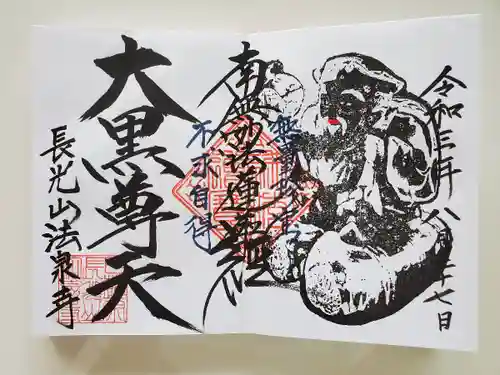 令和三年八月二十七日
無上宝珠
南無妙法蓮華経
不求自得
大黒尊天
長光山法泉寺